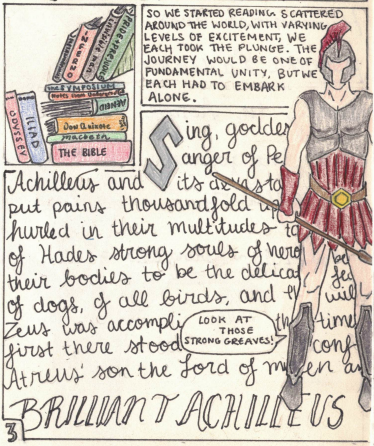 INFERNO
THE SYMPOSIUM
Notes from Underground
AENEID
Don Quixote
Macbeth
THE BIBLE
ODYSSEY
ILIAD
SO WE STARTED READING. SCATTERED
AROUND THE WORLD, WITH VARYING
LEVELS OF EXCITEMENT, WE
EACH TOOK THE PLUNGE. THE
JOURNEY WOULD BE ONE OF
FUNDAMENTAL UNITY, BUT WE
EACH HAD TO EMBARK
ALONE.
Sing, goddess
anger of Pe
Achilleus and its
put pains thousandfold
hurled in their multitudes to
of Hades strong souls of hero
their bodies to be the delica
of dogs, of all birds, and will
Zeus was accompli time
first there stood conf
Atreus' son the Lord of m en a
LOOK AT
THOSE
STRONG GREAVES!
BRILLIANT ACHILLEUS
3